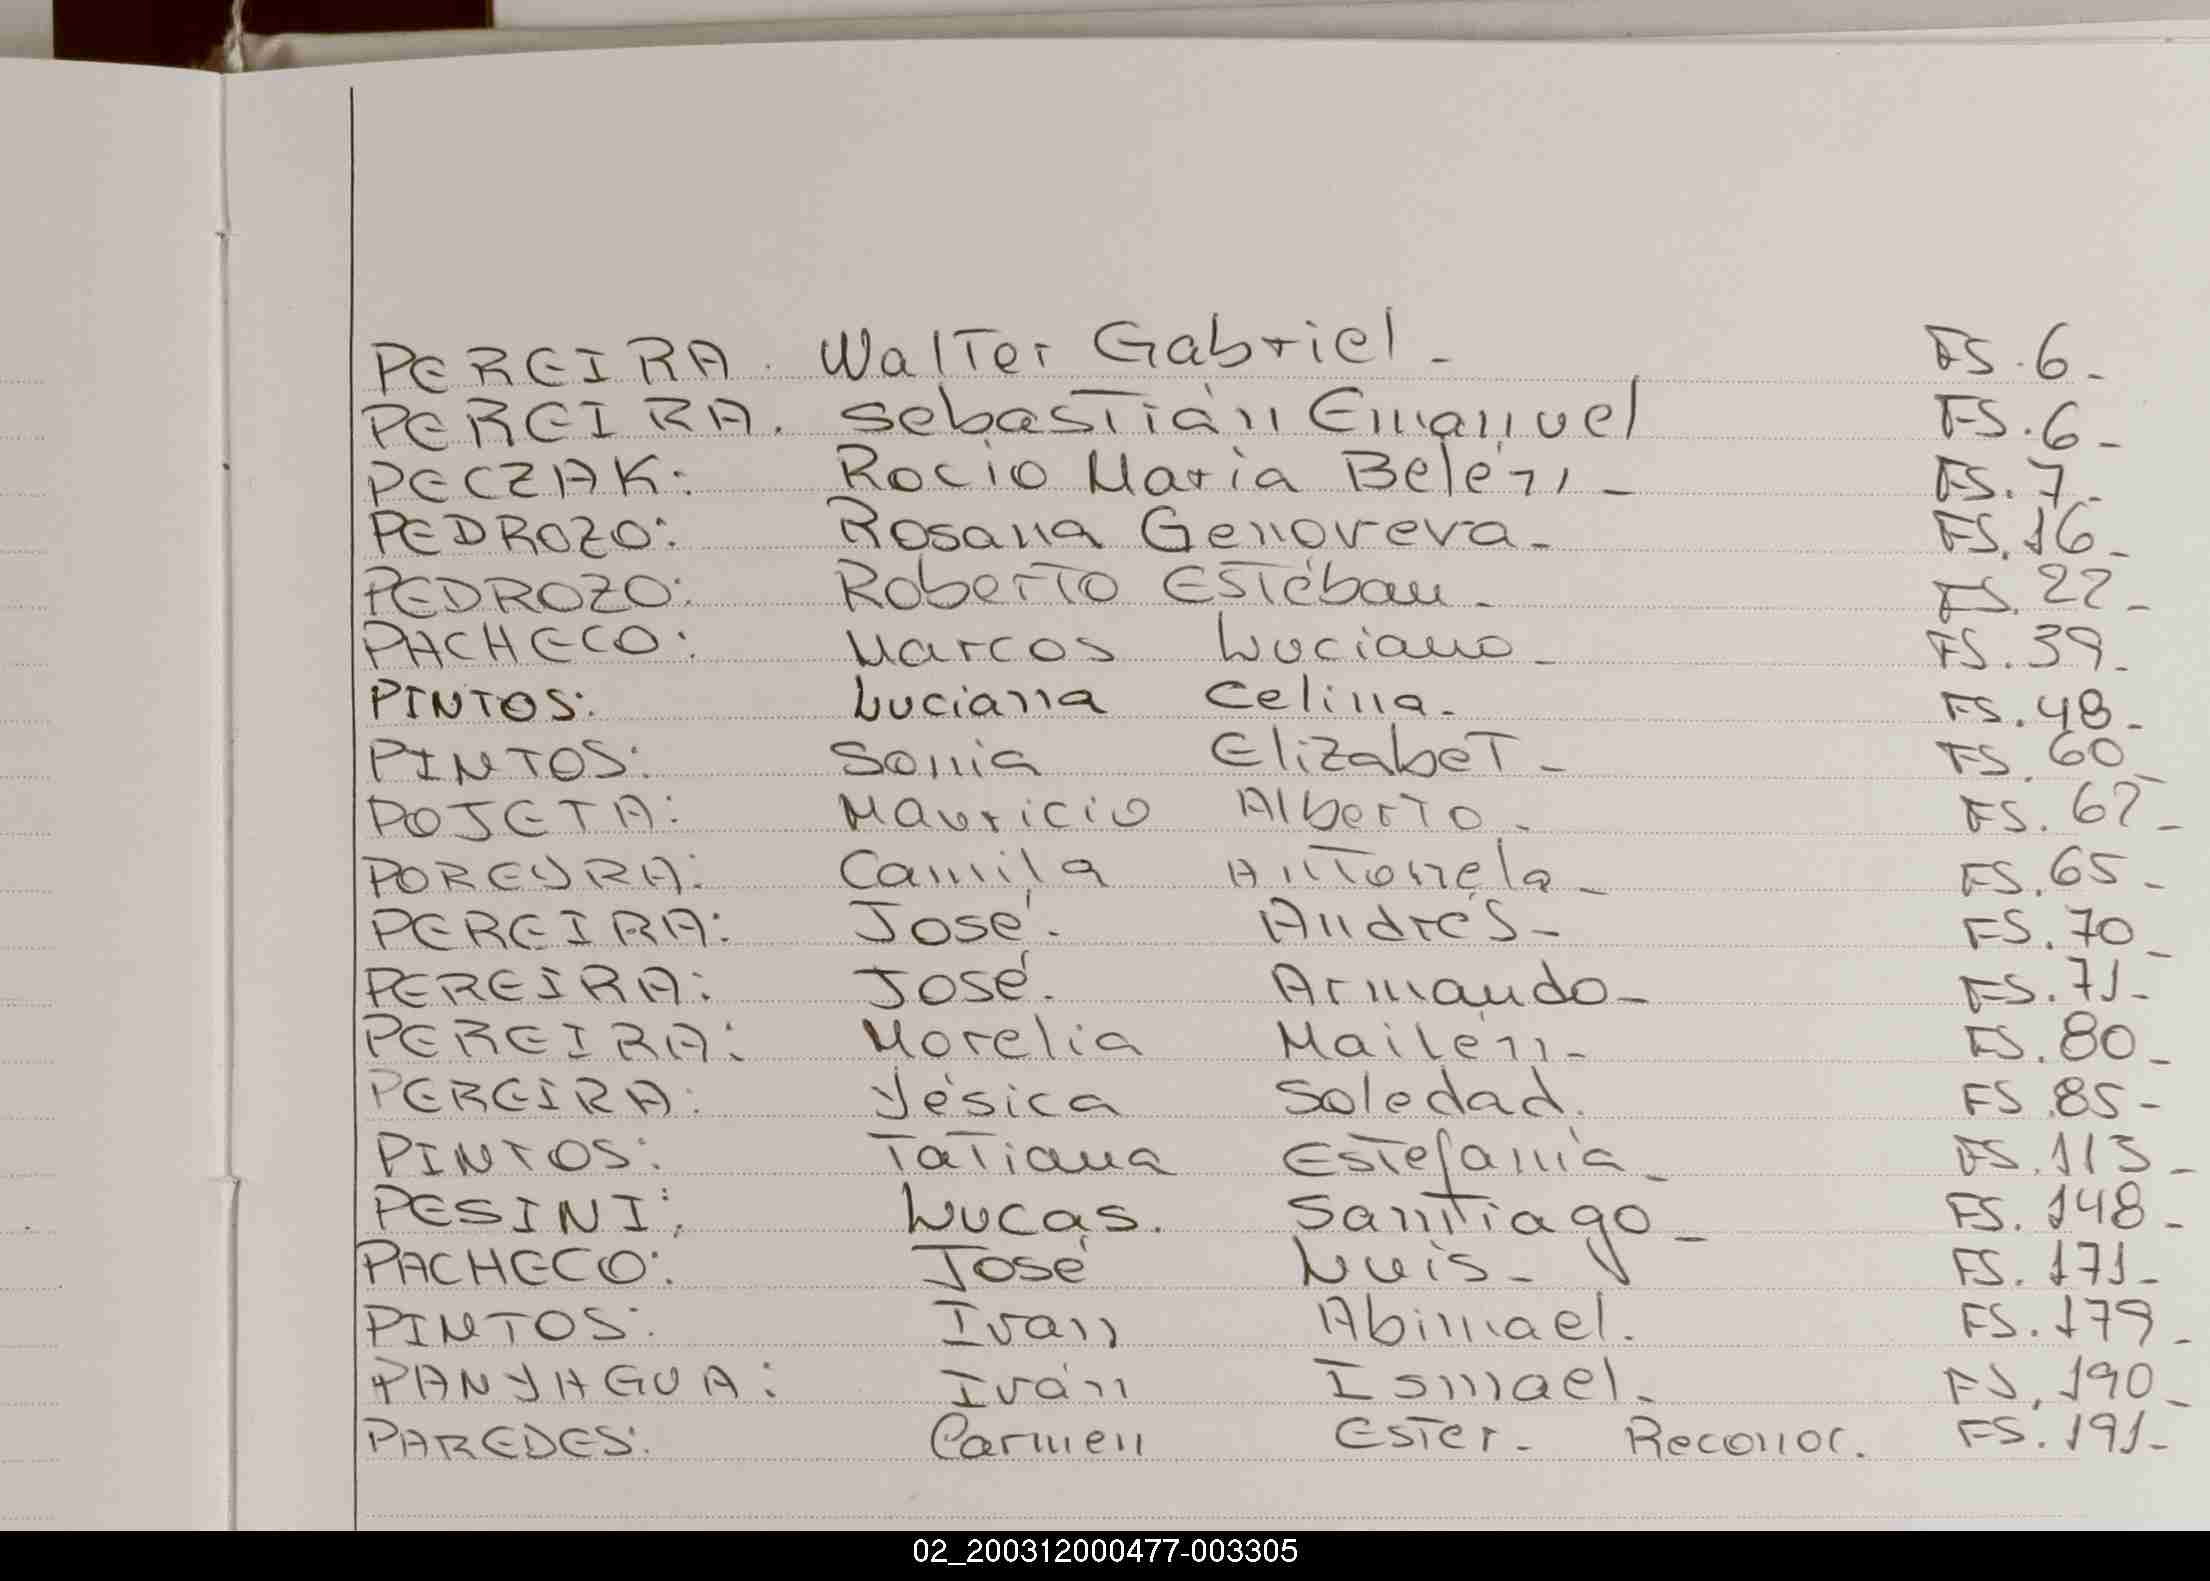 PEREIRA. Walter Gabriel - FS. 6-
PEREIRA. Sebastián Emanuel FS. 6-
PECZAK: Rocio Maria Belén - FS. 7-
PEDROZO: Rosana Genoveva- FS. 16-
PEDROZO: Roberto Estéban- FS. 22-
PACHECO: Marcos Luciano- FS. 39-
PINTOS: Luciana Celina- FS. 48-
PINTOS: Sonia Elizabet- FS. 60-
POJETA: Mauricio Alberto- FS. 62-
POREYRA: Camila Antonela- FS. 65-
PEREIRA: José. Andrés- FS. 70-
PEREIRA: José. Armando- FS. 71-
PEREIRA: Morelia Mailén- FS. 80-
PEREIRA: Yésica Soledad. FS. 85-
PINTOS: Tatiana Estefanía- FS. 113-
PESINI: Lucas. Santiago- FS. 148-
PACHECO: José Luis- FS. 171-
PINTOS: Ivan Abimael. FS. 179-
PANYAGUA: Iván Ismael. FS. 190-
PAREDES: Carmen Ester- Reconoc. FS. 191-
02_200312000477-003305